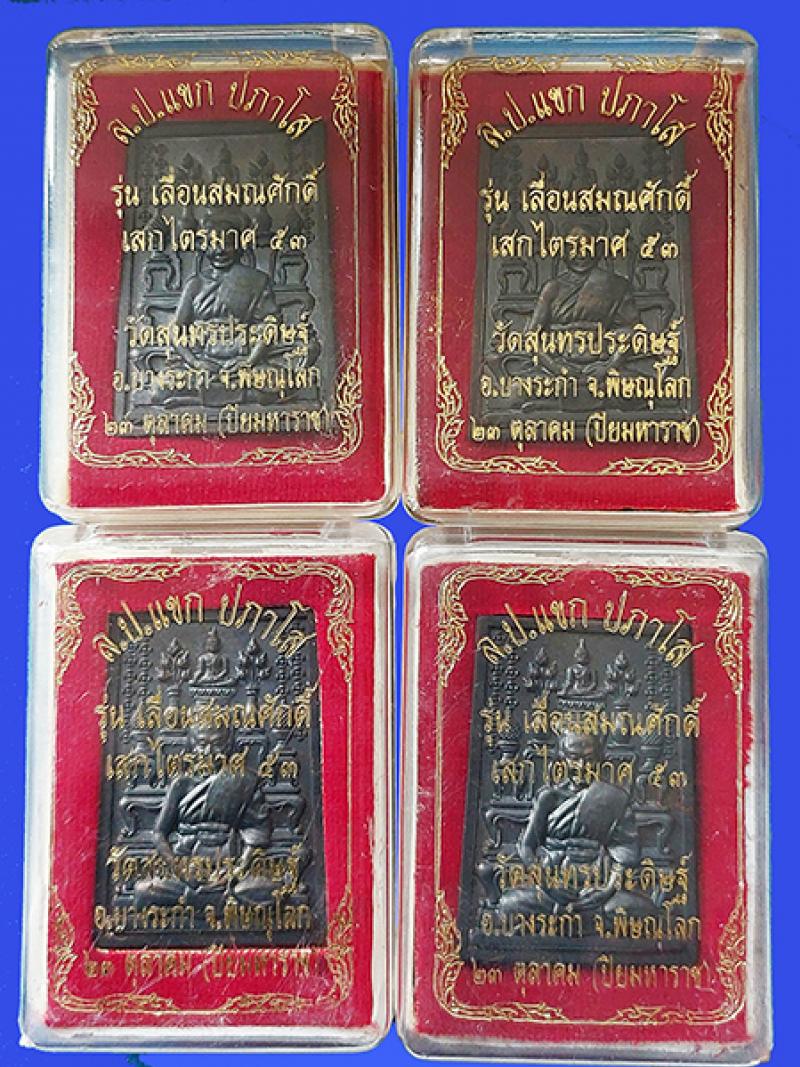 ล.ป.แขก ปภาโส
รุ่น เลื่อนสมณศักดิ์
เสกไตรมาศ ๕๓
วัดสุนทรประดิษฐ์
อ.บางระกำ จ.พิษณุโลก
๒๓ ตุลาคม (ปิยมหาราช)
ล.ป.แขก ปภาโส
รุ่น เลื่อนสมณศักดิ์
เสกไตรมาศ ๕๓
วัดสุนทรประดิษฐ์
อ.บางระกำ จ.พิษณุโลก
๒๓ ตุลาคม (ปิยมหาราช)
ล.ป.แขก ปภาโส
รุ่น เลื่อนสมณศักดิ์
เสกไตรมาศ ๕๓
วัดสุนทรประดิษฐ์
อ.บางระกำ จ.พิษณุโลก
๒๓ ตุลาคม (ปิยมหาราช)
ล.ป.แขก ปภาโส
รุ่น เลื่อนสมณศักดิ์
เสกไตรมาศ ๕๓
วัดสุนทรประดิษฐ์
อ.บางระกำ จ.พิษณุโลก
๒๓ ตุลาคม (ปิยมหาราช)